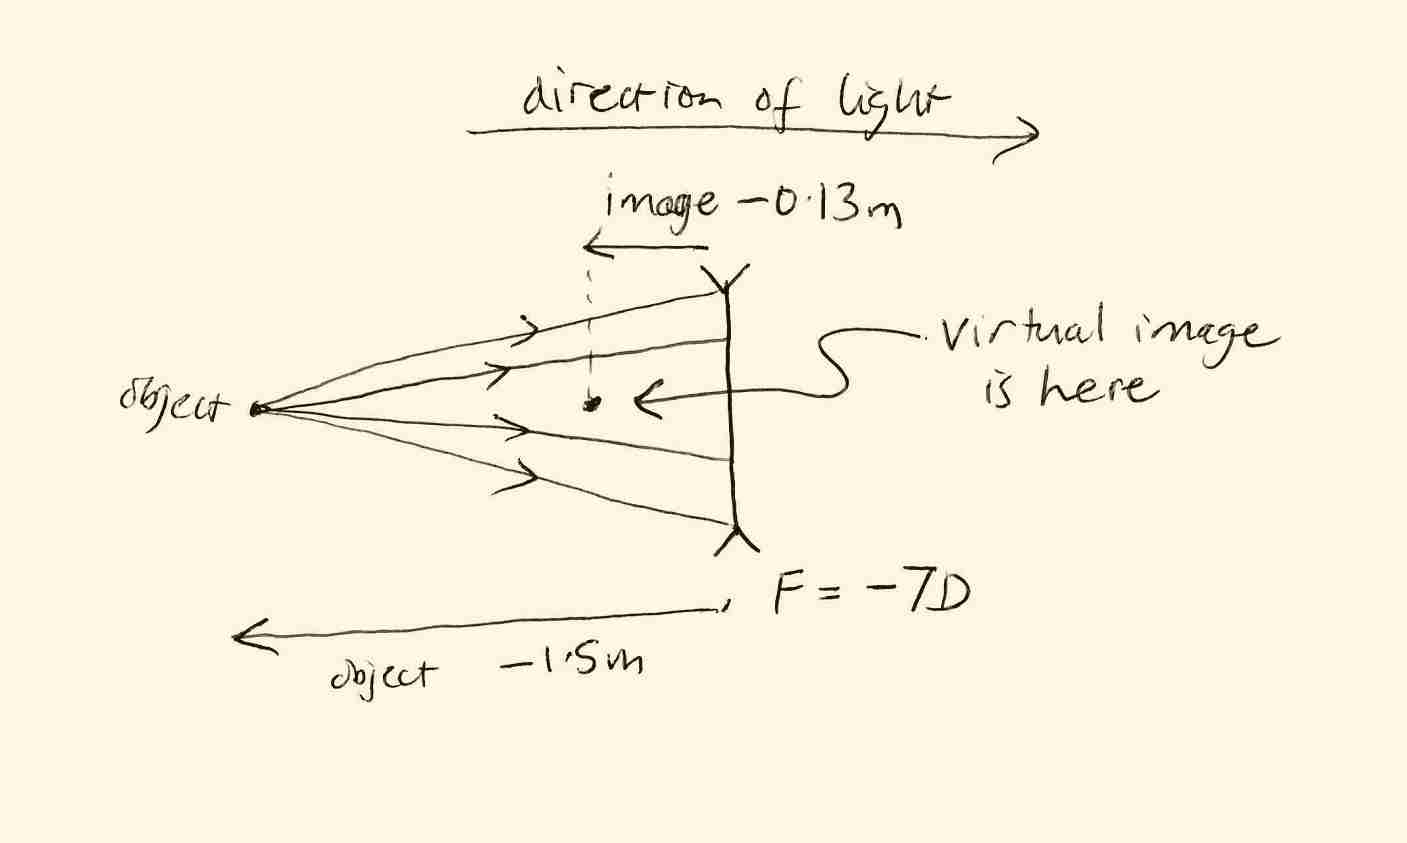 direction of light
image -0.13m
virtual image
is here
object
F = -7D
object -1.5m